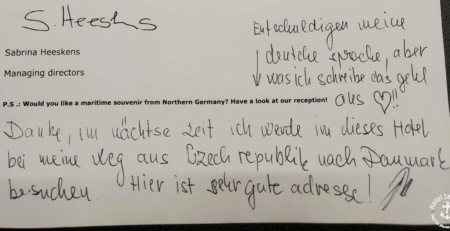 S. Heeskens
Entschuldigen meine
deutche sprache, aber
was ich schreibe das geht
aus ♡!!
Sabrina Heeskens
Managing directors
P.S .: Would you like a maritime souvenir from Northern Germany? Have a look at our reception!
Danke, im nächtse zeit ich werde in dieses Hotel
bei meine weg aus Czech republik nach Danmark
besuchen. Hier ist sehr gute adresse!